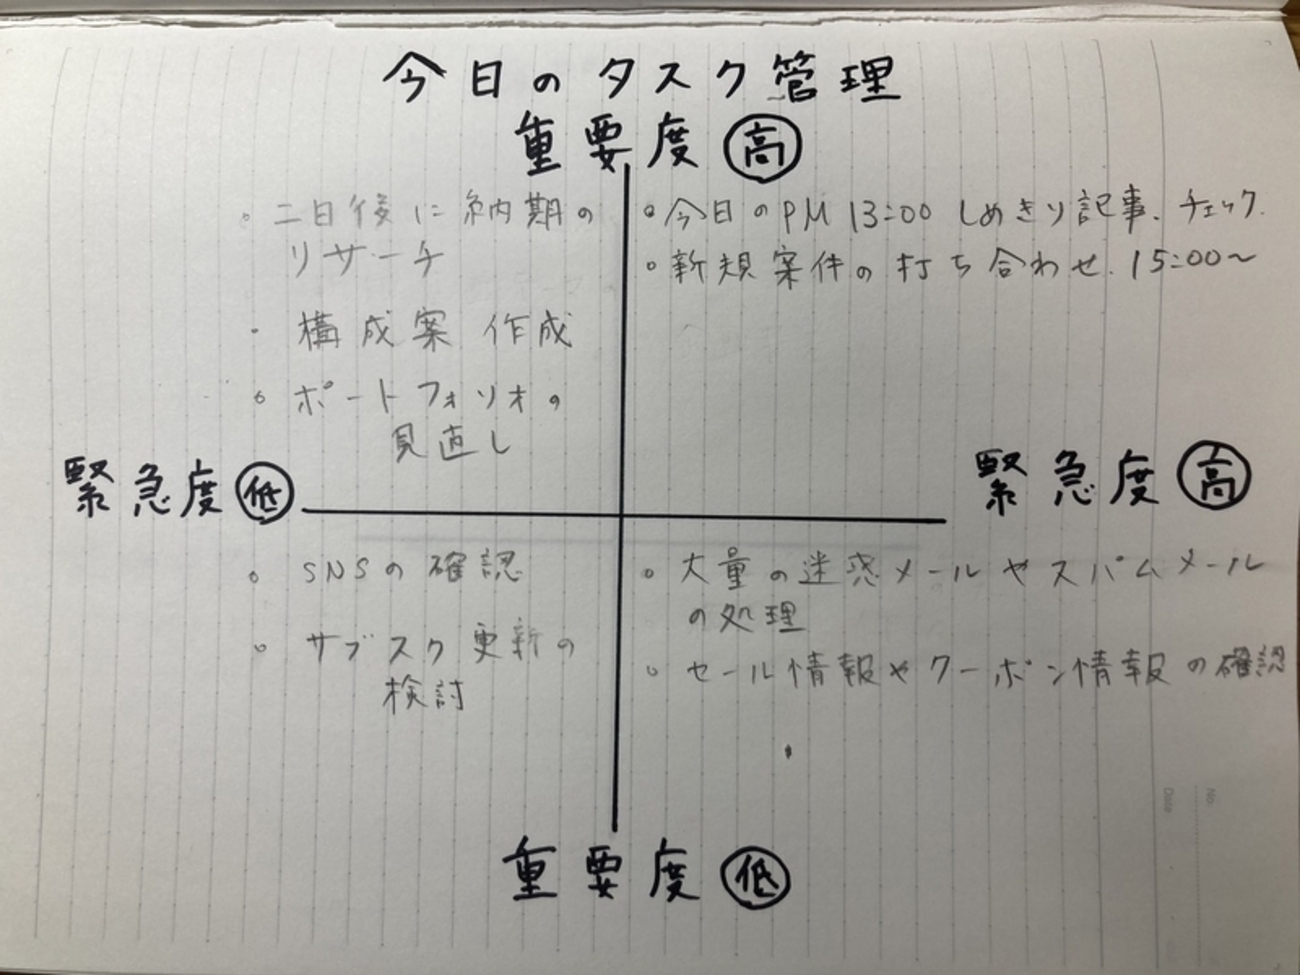 今日のタスク管理
重要度 高
・二日後に納期の
リサーチ
・構成案 作成
・ポートフォリオの
見直し
・今日のPM 13:00 しめきり記事.チェック.
・新規案件の打ち合わせ.15:00〜
緊急度 低
緊急度 高
・SNSの確認
・サブスク更新の
検討
・大量の迷惑メールやスパムメール
の処理
・セール情報やクーポン情報の確認
重要度 低
No.
Date